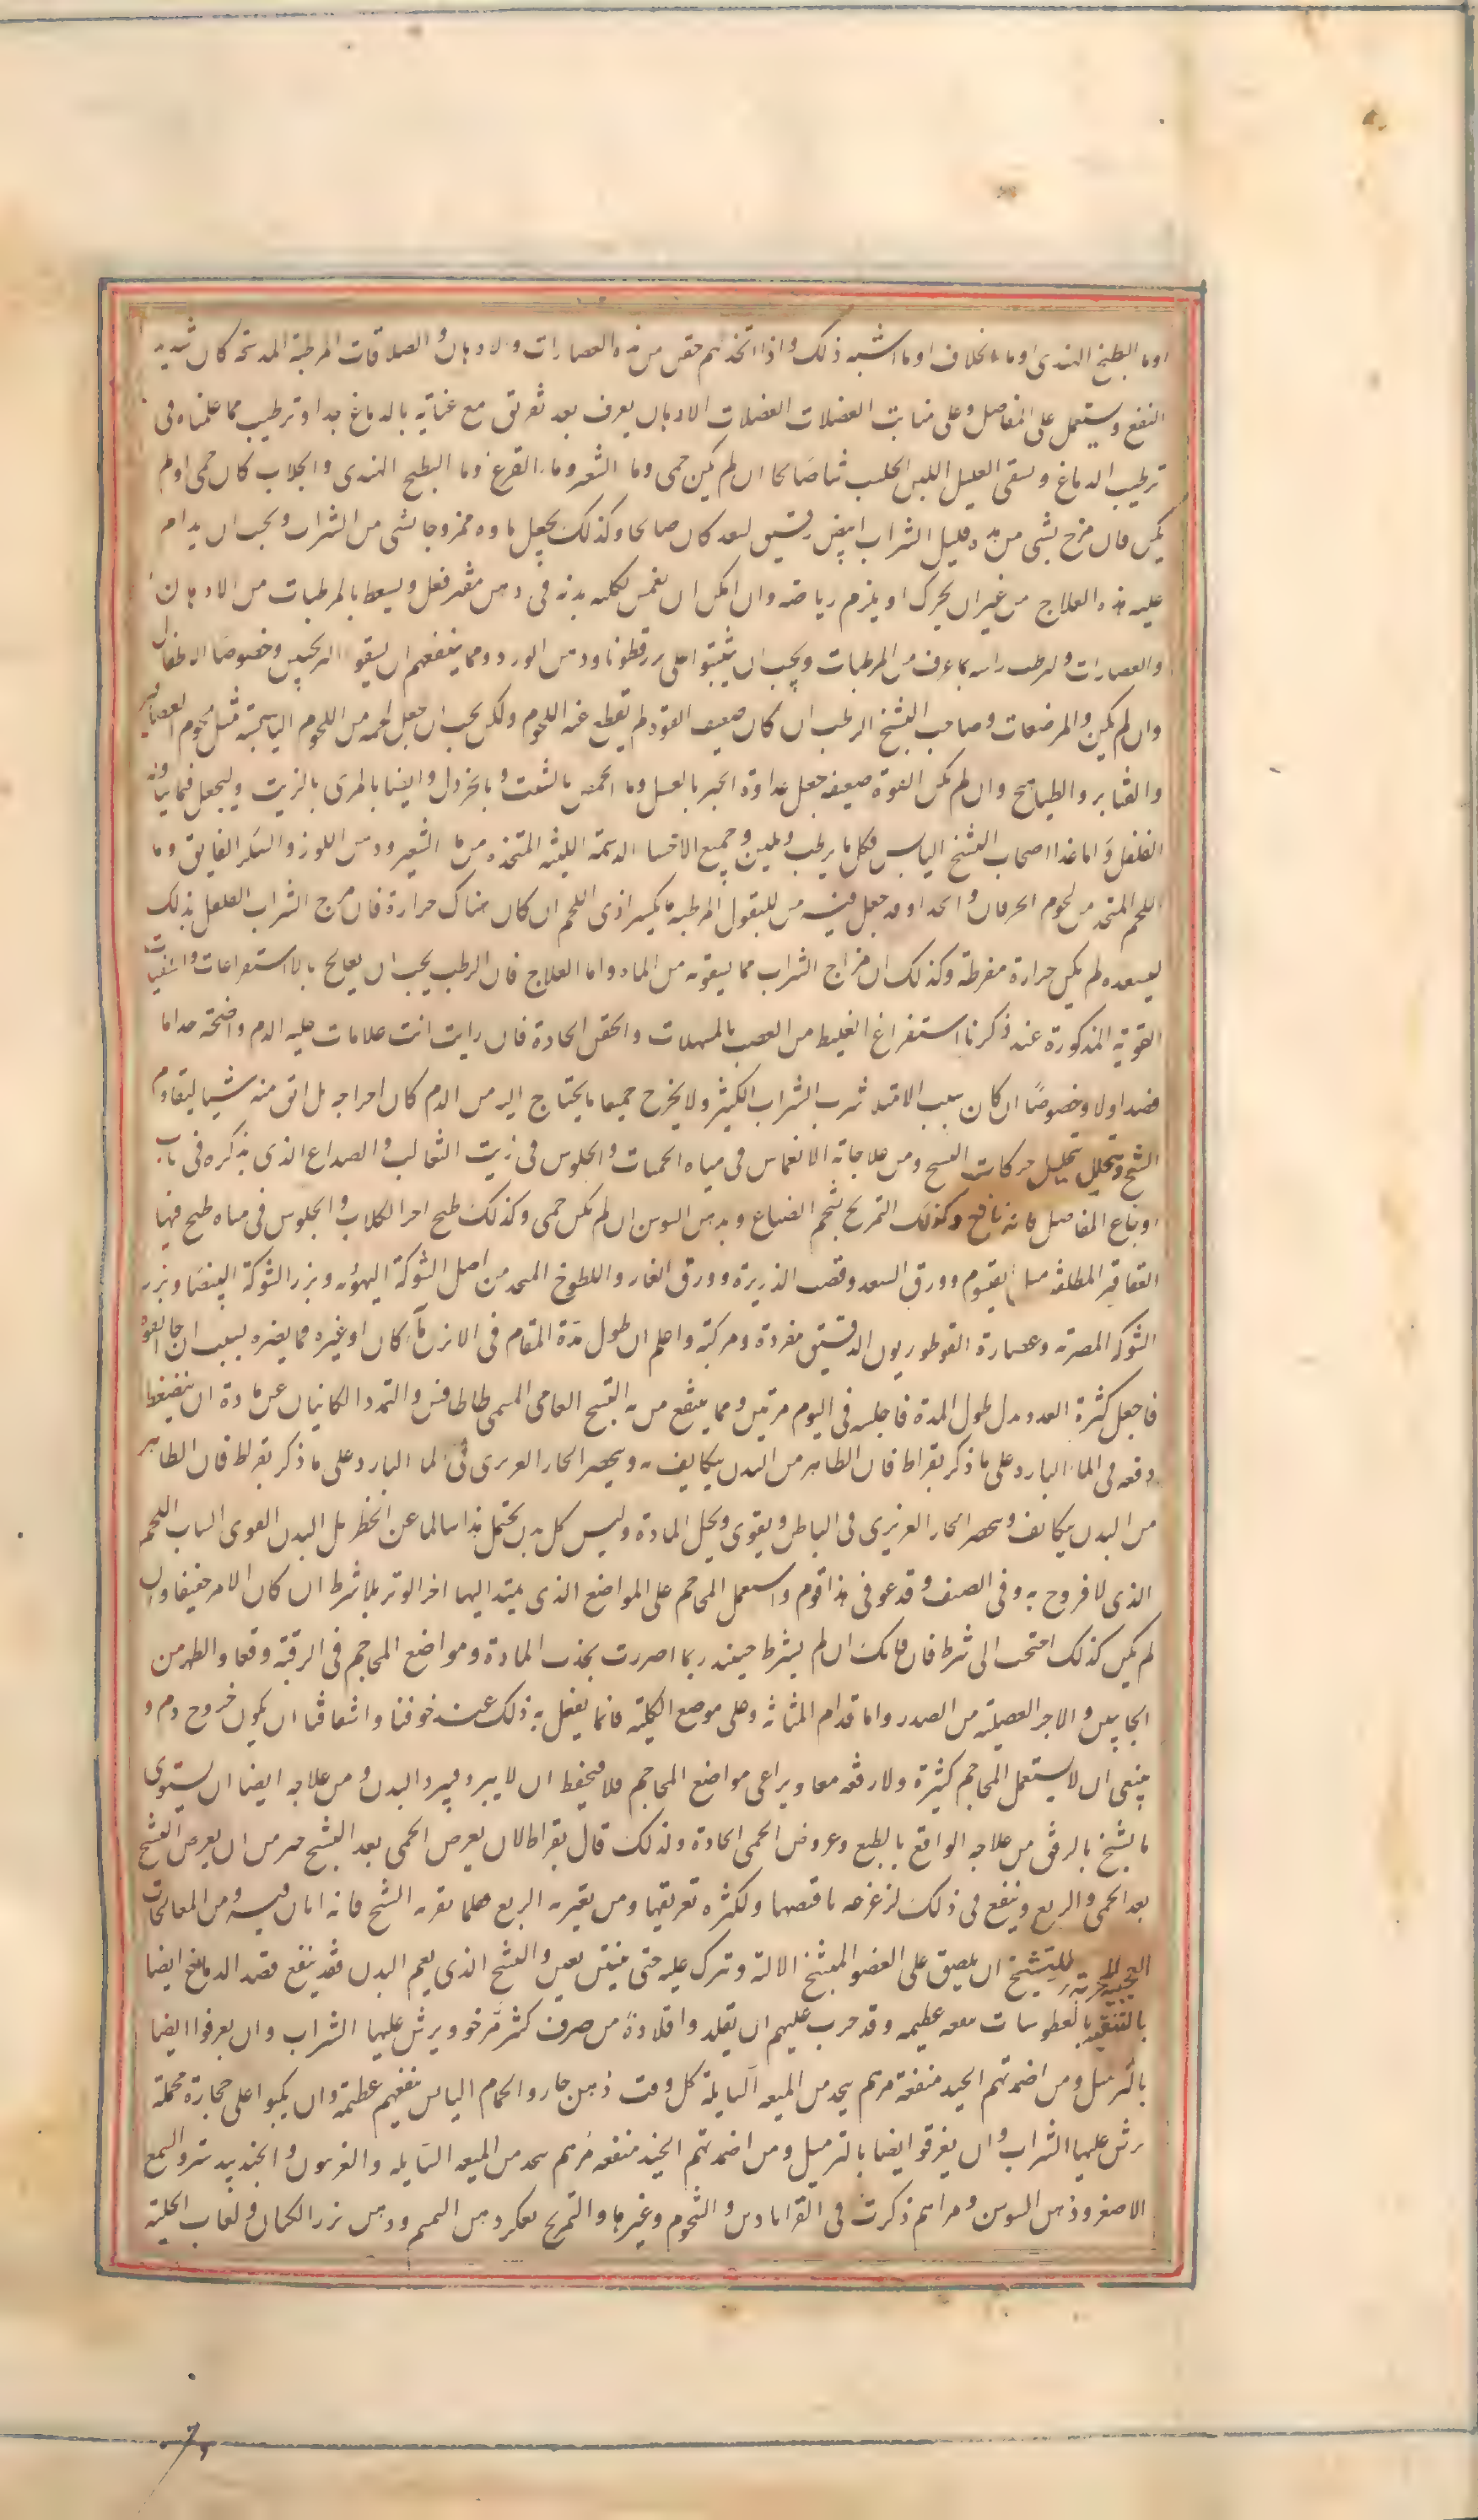 اوما البطيخ الهندى اوما الخلاف اوما اشبه ذلك واذا اتخذ لهم حقن من هذه العصارات والادهان والصلاقات المرطبة المدسته كان شديد
النفع ويستعمل على المفاصل وعلى منابت العضلات العضلات الادهان يعرف بعد تفريق مع عناية بالدماغ جدا وترطيب مما علمناه فى
ترطيب الدماغ ويسقى العليل اللبن الحليب شاصالحا ان لم يكن حمى وما الشعير وما القرع وما البطيخ الهندى والجلاب كان حمى اولم
يكن فان مزج بشى من هذه قليل الشراب ابيض رقيق لعد كان صالحا وكذلك يجعل ماوه ممزوجا بشى من الشراب ويجب ان يدام
عليه هذه العلاج من غير ان يحرك او يلزم رياضه وان امكن ان يغمس بكليه بدنه فى دهن مفتر فعل ويسعط بالمرطبات من الادهان
والعصارات ولرطب راسه بما عرف من المرطبات ويجب ان يثبتوا على بزرقطونا ودهن الورد ومما ينفعهم ان يسقو الترنجبين وخصوصا الاطفال
وان لم يكن والمرضعات وصاحب التشنخ الرطب ان كان ضعيف القوه لم يقطع عنه اللحوم ولكن يجب ان يجعل لحمه من اللحوم اليابسة مثل لحوم العصافير
والقنابر والطياهيج وان لم تكن القوة ضعيفه جعل غداوه الخبز بالعسل وما الحمص بالشبت وبالخردل وايضا بالمرى بالزيت وليجعل فيما يتناوله
الفلفل واما غذا اصحاب التشنخ اليابس فكل ما يرطب ويلين وجميع الاحسا الدسمة اللينه المتخذه من ما الشعير ودهن اللوز والسكر الفايق وما
اللحم المتخذ من لحوم الخرفان والجدا وقد جعل فيه من البقول المرطبة ما يكسر اذى اللحم ان كان هناك حرارة فان مزج الشراب القليل بذلك
ليسعده لم يكن حرارة مفرطة وكذلك ان مزاج الشراب مما يسقونه من الماء واما العلاج فان الرطب يجب ان يعالج بالاستفراعات والتنقيات
القوية المذكورة عند ذكرنا استفراغ الغليط من العصب بالمسهلات والحقن الحادة فان رايت انت علامات غلبه الدم واضحة جدا فا
فصد اولا وخصوصًا ان كان سبب الامتلا شرب الشراب الكثير ولا يخرج جميعا ما يحتاج اليه من الدم كان اخراجه بل ابق منه شيا ليقاوم
الشنج ويتحلل بتحليل حركات التشنج ومن علاجاته الانغماس فى مياه الحميات والجلوس فى زيت الثعالب والصداع الذى نذكره فى باب
اوجاع المفاصل فانه نافع وكذلك التمريخ بشحم الضباع وبدهن السوسن ان لم تكن حمى وكذلك طبخ اجر الكلاب والجلوس فى مياه طبخ فيها
العقاقير المطلقه مثل القيسوم وورق السعد وقصب الذريرة وورق الغار واللطوخ المتخذ من اصل الشوكة اليهوديه وبزر الشوكة البيضا وبزر
الشوكه المصريه وعصارة القنطوريون الدقيق مفردة ومركبة واعلم ان طول مدة المقام فى الابزن ما كان او غيره مما يضره بسبب ارخا القوه
فاجعل كثرة العدد بدل طول المدة فاجلسه فى اليوم مرتين ومما ينتفع من به التشنج العامى المسمى طاطافنس والتمدد الكاينان عن مادة ان ينغمط
دفعه فى الماء البارد على ما ذكر بقراط فان الظاهر من البدن يتكايف به ويحصر الحار الغريزى فى الماء البارد على ما ذكر بقراط فان الظاهر
من البدن يتكايف ويحصر الحار الغريزى فى الباطن ويقوى ويحلل المادة وليس كل بدن يحتمل هذا سالما عن الخطر بل البدن القوى الشاب اللحم
الذى لا قروح به وفى الصيف وقد عوفى هذا قوم واستعمل المحاجم على المواضع الذى يمتد اليها اخر الوتر بلا شرط ان كان الامر خفيفا وان
لم يكن كذلك احتجت الى شرط فان فانك ان لم يشرط حينئذ ربما اضررت بجذب المادة ومواضع المحاجم فى الرقبة وفقار الظهر من
الجانبين والاجزا العضليه من الصدر واما قدام المثانة وعلى موضع الكلية فانما يفعل به ذلك عند خوفنا واشفاقنا ان يكون خروج دم و
ينبغى ان لا يستعمل المحاجم كثيرة ولا دفعه معا ويراعى مواضع المحاجم فلا فيحفظ ان لا يبرد فيبرد البدن ومن علاجه ايضا ان يستوى
ما تشنخ بالرفق من علاجه الواقع بالطبع وعروض الحمى الحادة ولذلك قال بقراط لان يعرض الحمى بعد التشنج خير من ان يعرض التشنخ
بعد الحمى والربع وينفع فى ذلك لزعزعه نافضها ولكثره تعريقها ومن يعتريه الربع فلما يعتريه الشنج فانه امان فيه ومن المعالجات
العجيبة المجربة للتشنخ ان يلصق على العضو المتشنخ الالية وتترك عليه حتى ينتن يعين والتشنج الذى يعم البدن فقد ينفع فصد الدماغ ايضا
بالتنقية بالعطوسات منفعه عظيمه وقد جرب عليهم ان يقلدوا قلادة من صوف كثير مرخو ويرش عليها الشراب وان يعرقوا ايضا
بالترميل ومن اضمدتهم الجيد منفعة مرهم يتخذ من الميعه السايلة كل وقت ذهن حار والحمام اليابس ينفعهم عظيمة وان يكبوا على حجارة محملة
يرش عليها الشراب وان يغرقوا ايضا بالترميل ومن اضمدتهم الجيد منفعه مرهم يتخذ من الميعه السايله والفربيون والجندبيدستر والشمع
الاصفر وذهن السوسن ومراهم ذكرت فى القراباذين والشحوم وغيرها والتمريخ بعكر دهن السمسم ودهن بزر الكتان ولعاب الحلبة